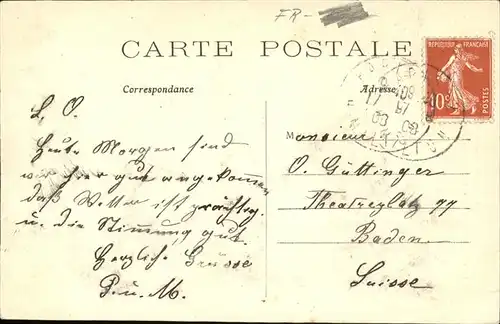 FR-
CARTE POSTALE
Correspondance
Adresse
RÉPUBLIQUE FRANÇAISE
10c
POSTES
L. O.
Heute Morgen sind
wir hier gut angekommen,
daß Wetter ist prächtig
u. die Stimmung gut.
Herzliche Grüsse
P. u. M.
Monsieur
O. Güttinger
Theaterplatz 99
Baden
Suisse